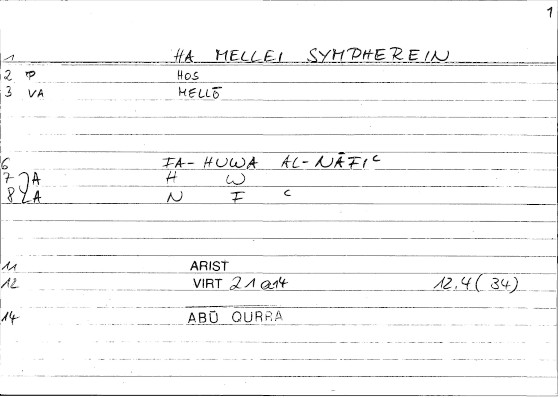 1
1 HA MELLEI SYMPHEREIN
2 P HOS
3 VA MELLŌ
6 FA-HUWA AL-NĀFIC
7 A H W
8 A N F C
11 ARIST
12 VIRT 21a14 12.4(34)
14 ABŪ QURRA